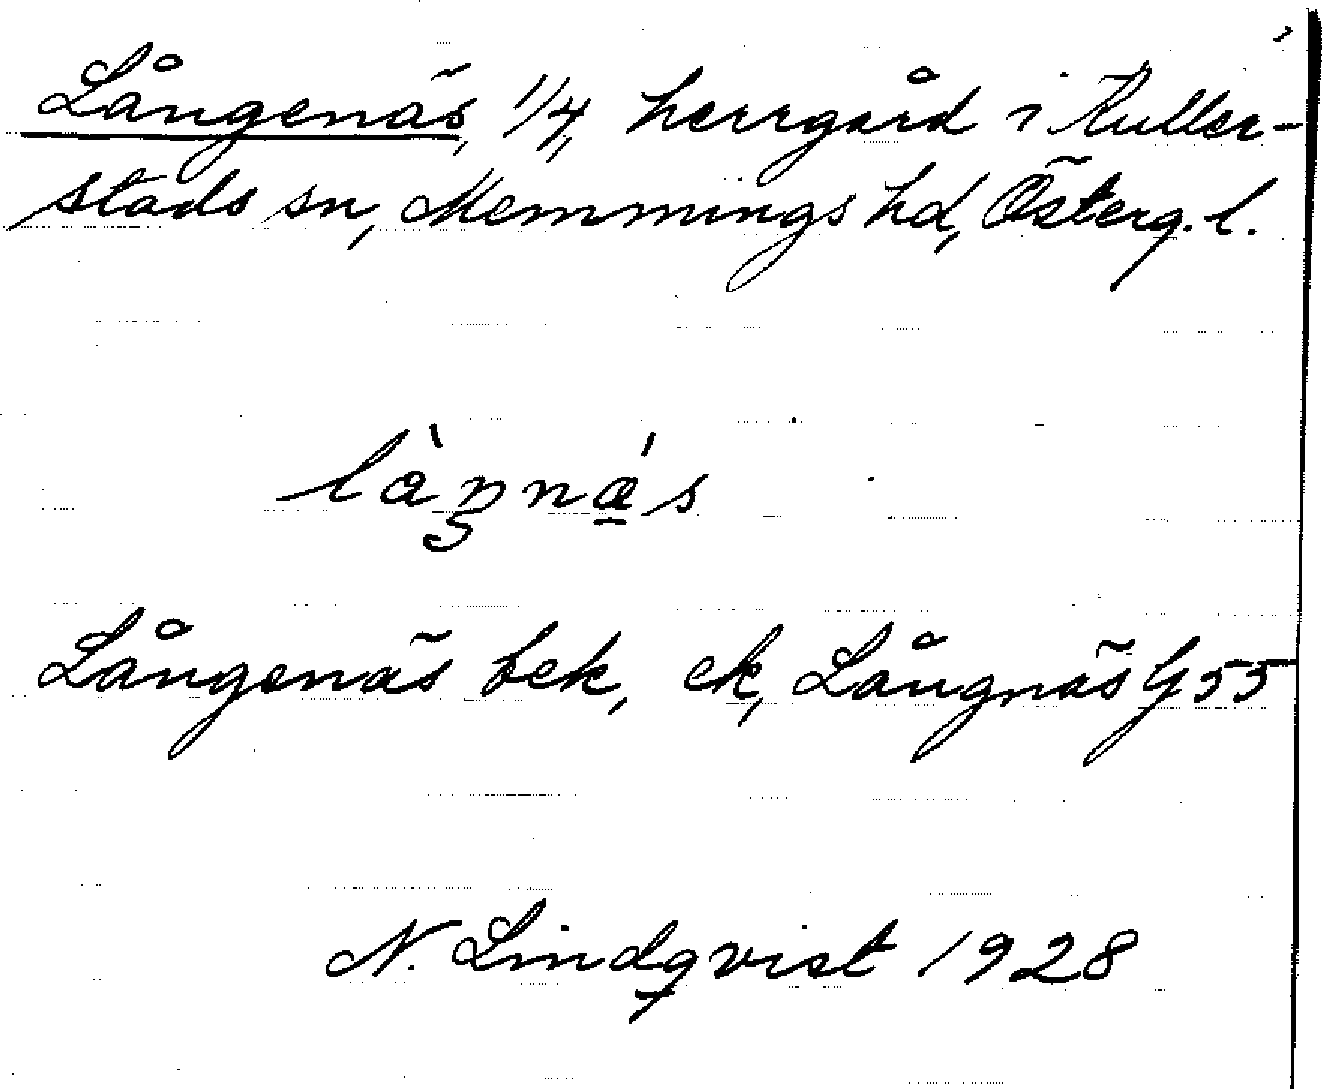 Långenäs, 1/4, herrgård i Kuller-
stads sn, Memmings hd, Österg. l.
làŋnä́s
Långenäs bek, ek, Långnäs G 55
N. Lindqvist 1928